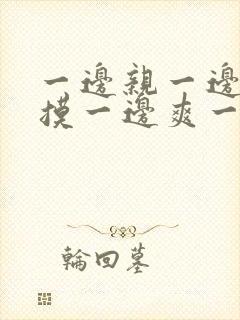 一邊親一邊
摸一邊爽一
輪回墓